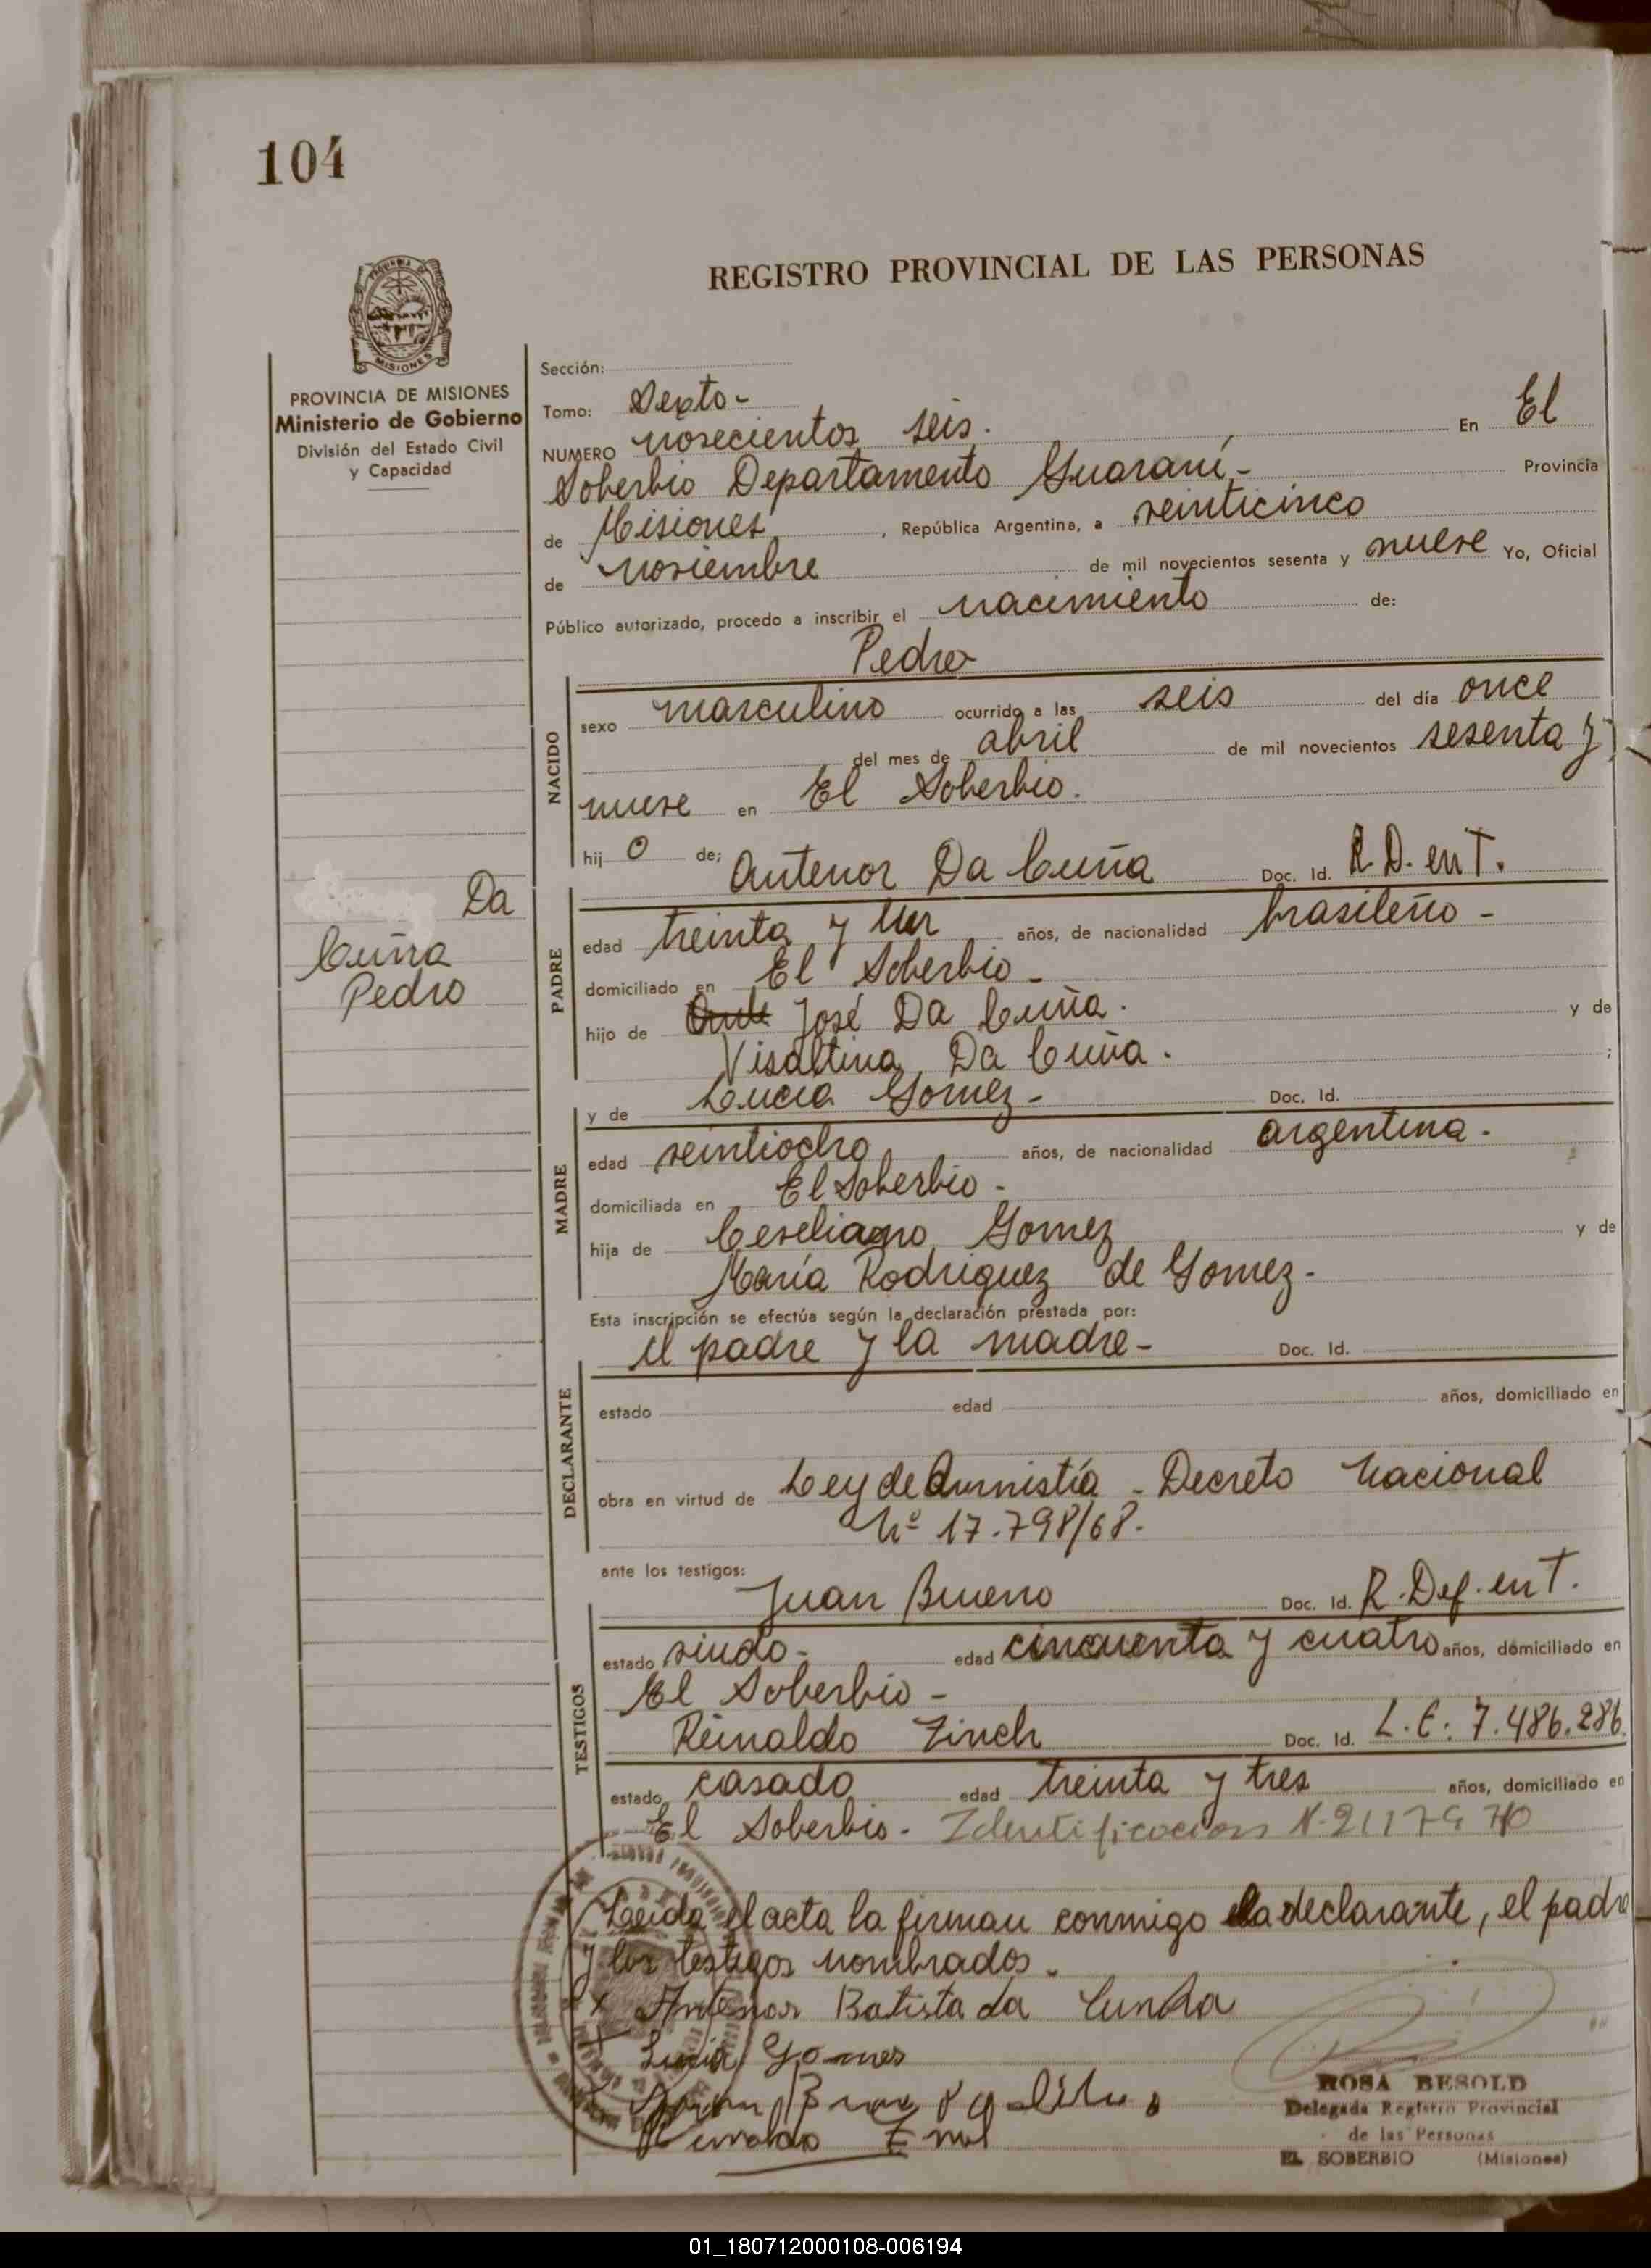 104
REGISTRO PROVINCIAL DE LAS PERSONAS
MISIONES
PROVINCIA DE MISIONES
Ministerio de Gobierno
División del Estado Civil
y Capacidad
Da
Cuña
Pedro
Sección:
Tomo: Sexto -
NUMERO novecientos seis. En El
Soberbio Departamento Guaraní - Provincia
de Misiones, República Argentina, a veinticinco
de noviembre de mil novecientos sesenta y nueve Yo, Oficial
Público autorizado, procedo a inscribir el nacimiento de:
Pedro
NACIDO
sexo masculino ocurrido a las seis del día once
del mes de abril de mil novecientos sesenta y
nueve en El Soberbio.
hijo de; Antenor Da Cuña Doc. Id. R. D. en T.
PADRE
edad treinta y años, de nacionalidad brasileño -
domiciliado en El Soberbio -
hijo de José Da Cuña. y de
Visaltina Da Cuña. ;
y de Lucia Gomez - Doc. Id.
MADRE
edad veintiocho años, de nacionalidad argentina.
domiciliada en El Soberbio -
hija de Gomez y de
María Rodriguez de Gomez -
Esta inscripción se efectúa según la declaración prestada por:
el padre y la madre - Doc. Id.
DECLARANTE
estado edad años, domiciliado en
obra en virtud de Ley de Amnistía - Decreto Nacional
Nº 17.798/68.
ante los testigos:
Juan Bueno Doc. Id. R. Def. en T.
TESTIGOS
estado viudo - edad cincuenta y cuatro años, domiciliado en
El Soberbio -
Reinaldo Zinch Doc. Id. L. E. 7.486.286
estado casado edad treinta y tres años, domiciliado en
El Soberbio - Identificacion N-211
Leida el acta la firman conmigo la declarante, el padre
y los testigos nombrados.
x Antenor Batista da Cunha
Lucia Gomes
ROSA BESOLD
Delegada Registro Provincial
de las Personas
EL SOBERBIO (Misiones)
01_180712000108-006194